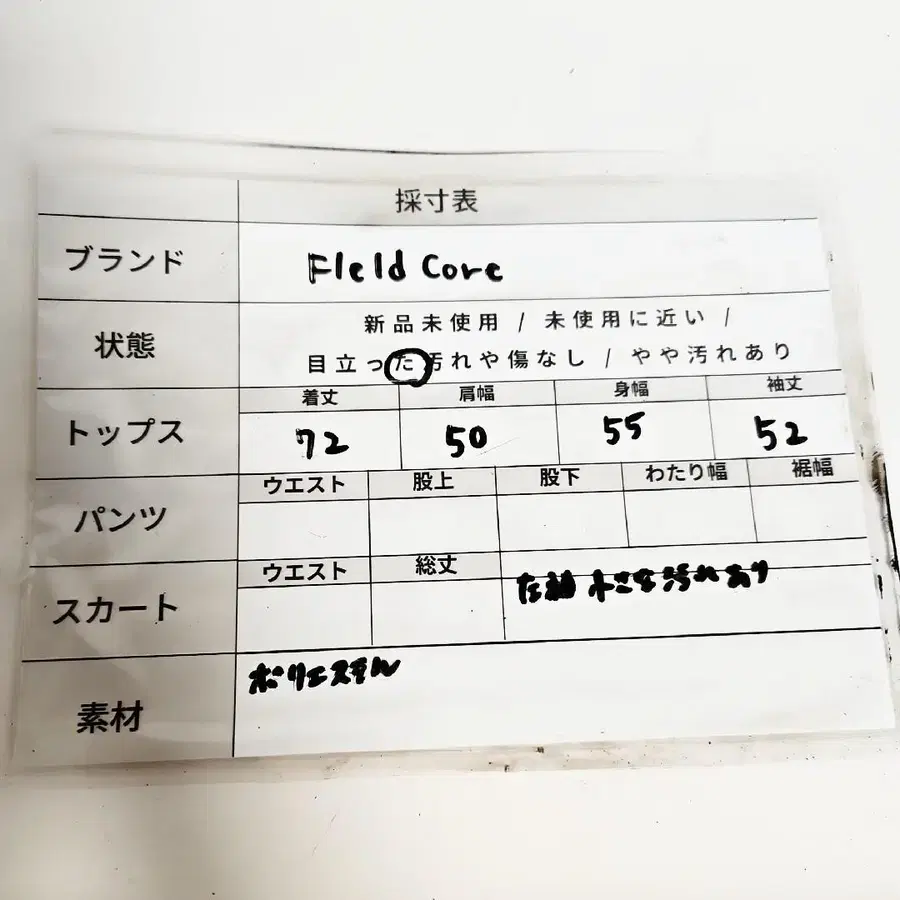 採寸表
ブランド Field Core
状態 新品未使用 / 未使用に近い /
目立った汚れや傷なし / やや汚れあり
着丈 肩幅 身幅 袖丈
トップス 72 50 55 52
ウエスト 股上 股下 わたり幅 裾幅
パンツ
ウエスト 総丈
左袖 小さな汚れあり
スカート
ポリエステル
素材